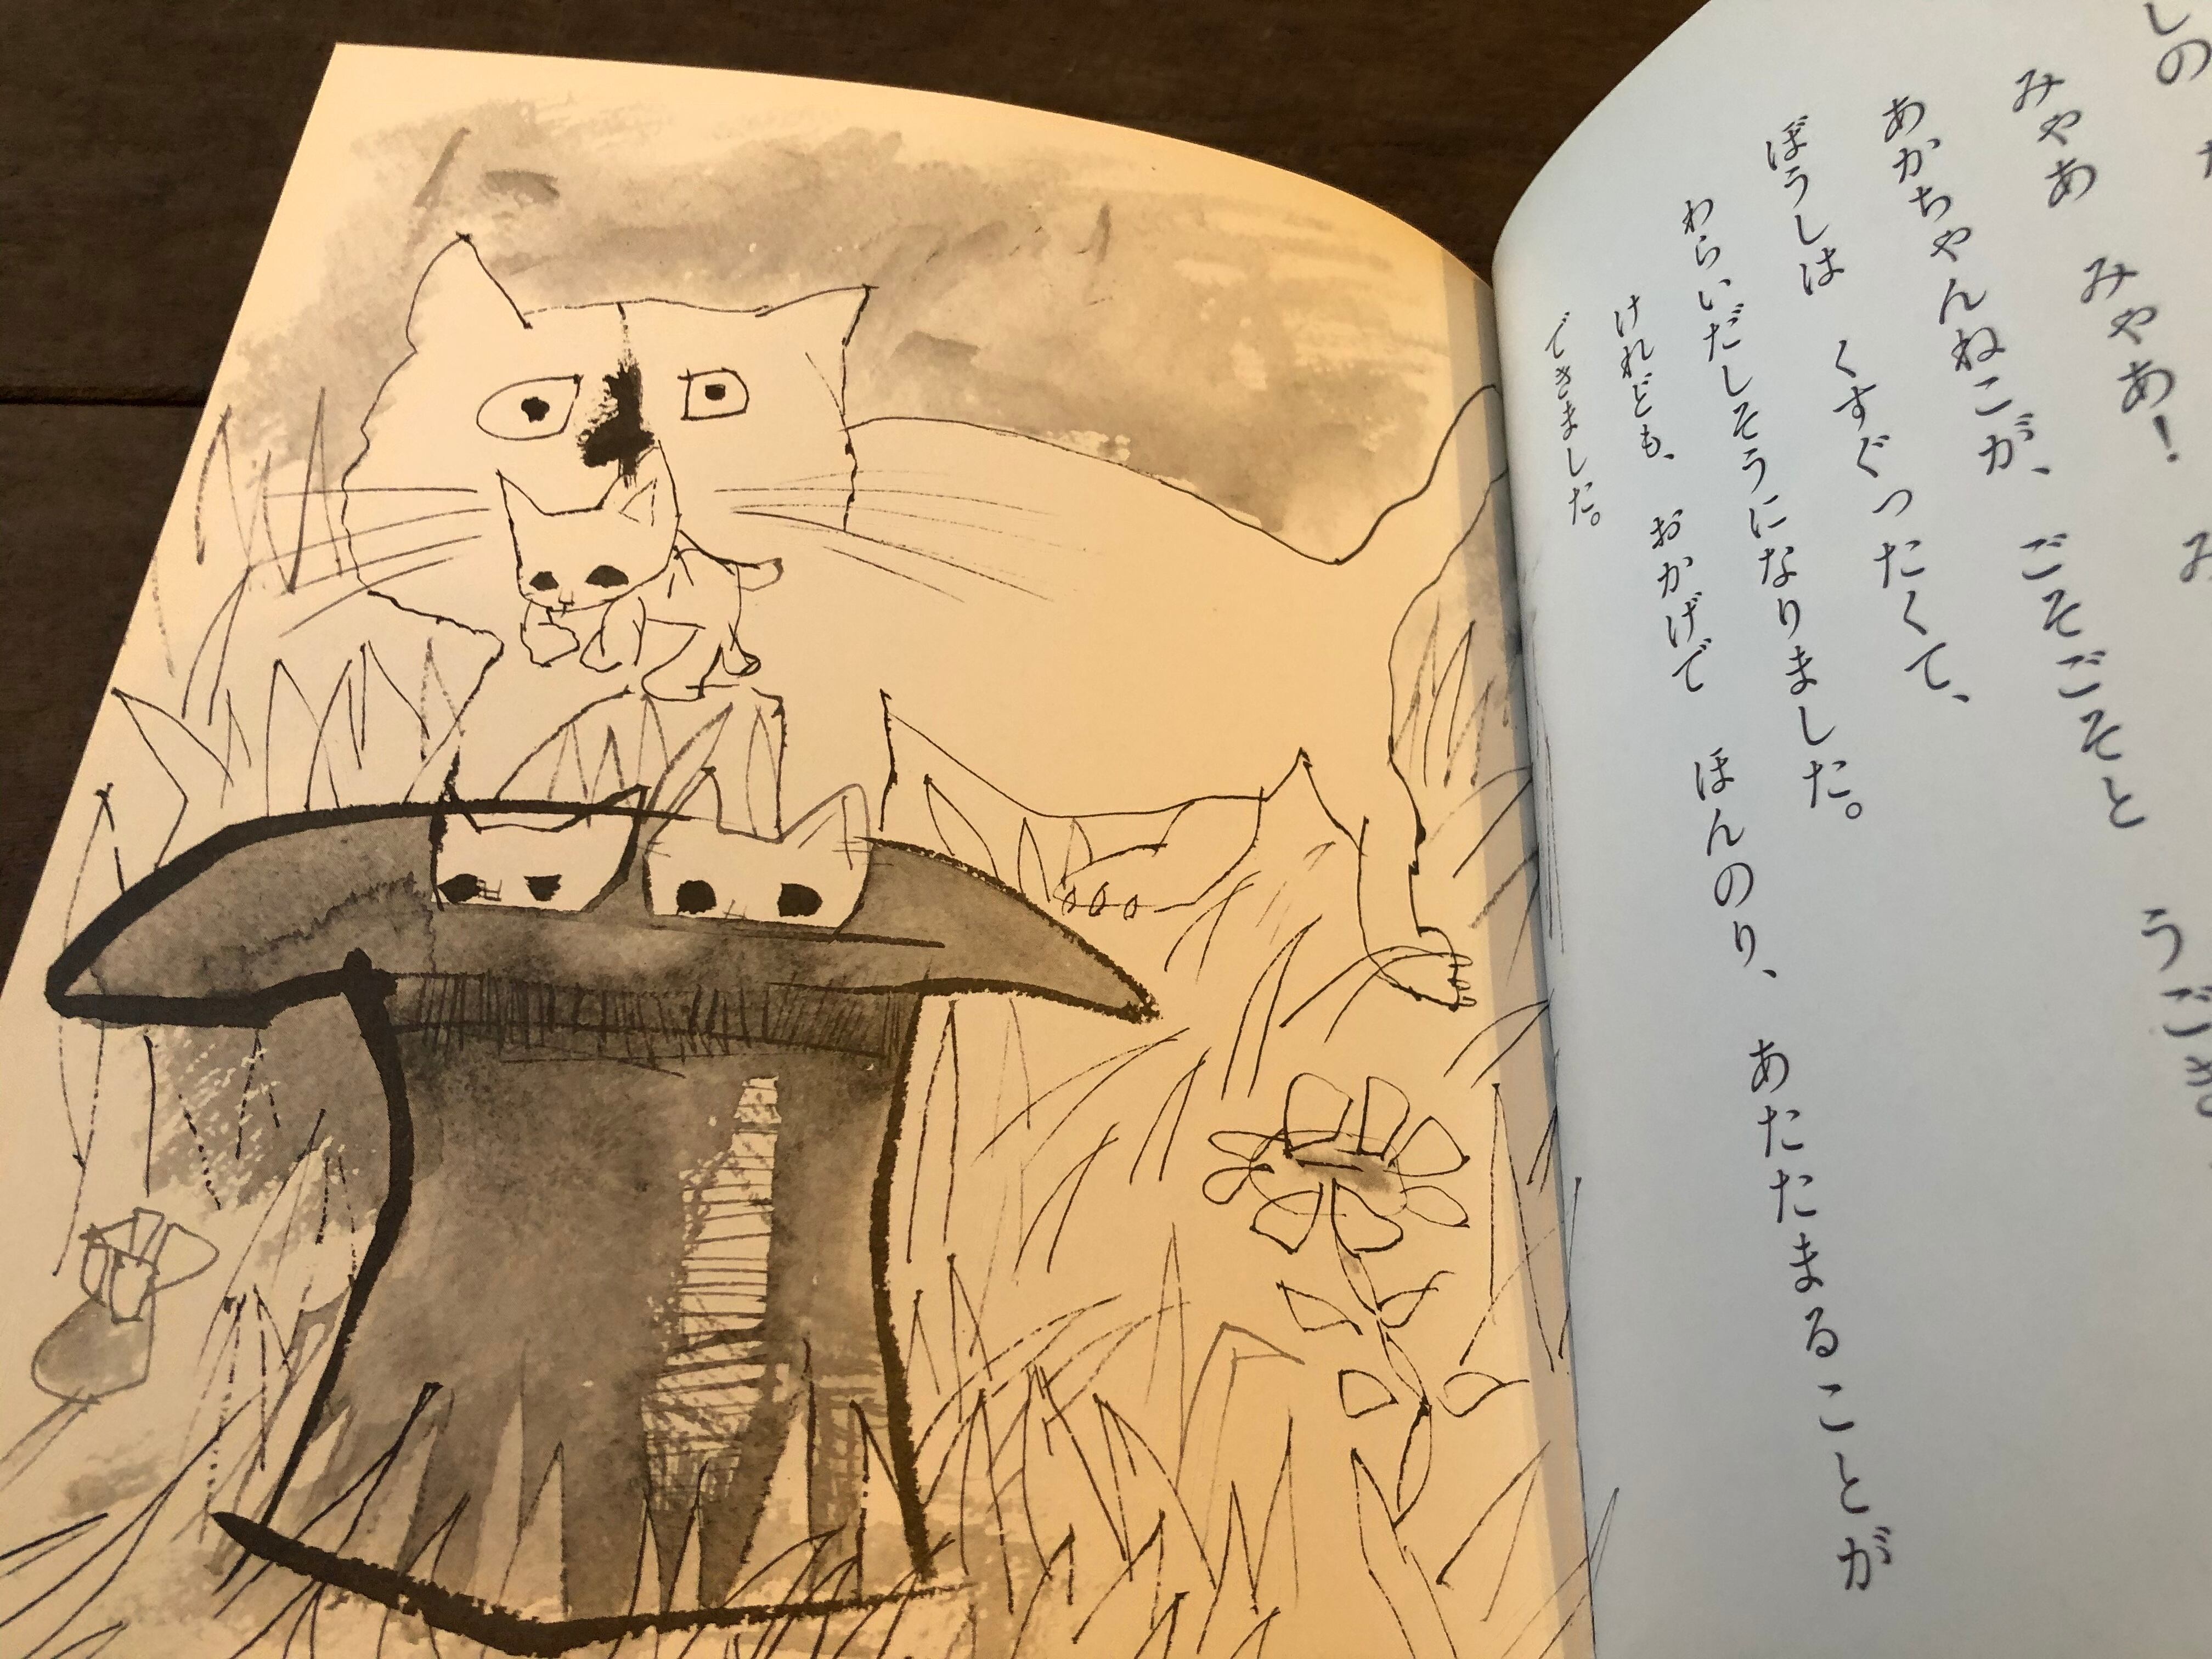 しの
みゃあ　みゃあ！　み
あかちゃんねこが、ごそごそと　うごき
ぼうしは　くすぐったくて、
わらいだしそうになりました。
けれども、おかげで　ほんのり、あたたまることが
できました。